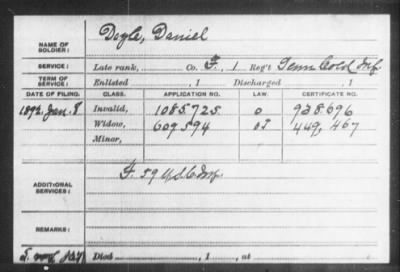 NAME OF SOLDIER: Dogle, Daniel
SERVICE: Late rank, Co. F, 1 Reg't Tenn Cold Inf
TERM OF SERVICE: Enlisted , 1 Discharged , 1
DATE OF FILING. CLASS. APPLICATION NO. LAW. CERTIFICATE NO.
1892 Jan. 8 Invalid, 1085725 0 928.696
Widow, 609594 449,467
Minor,
ADDITIONAL SERVICES: F. 59 U.S.C. Inf.
REMARKS:
Died , 1 , at